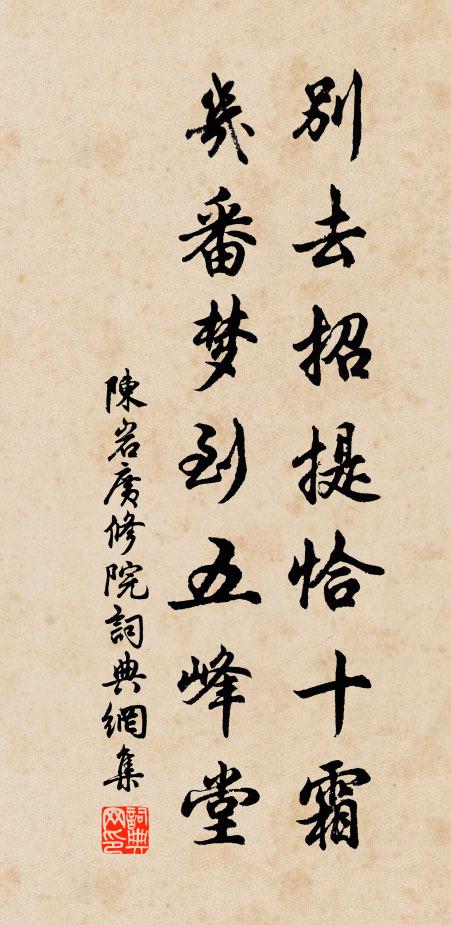 别去招提恰十霜
幾番梦到五峰堂
陳岩廣修院詞典網集
詞典网印